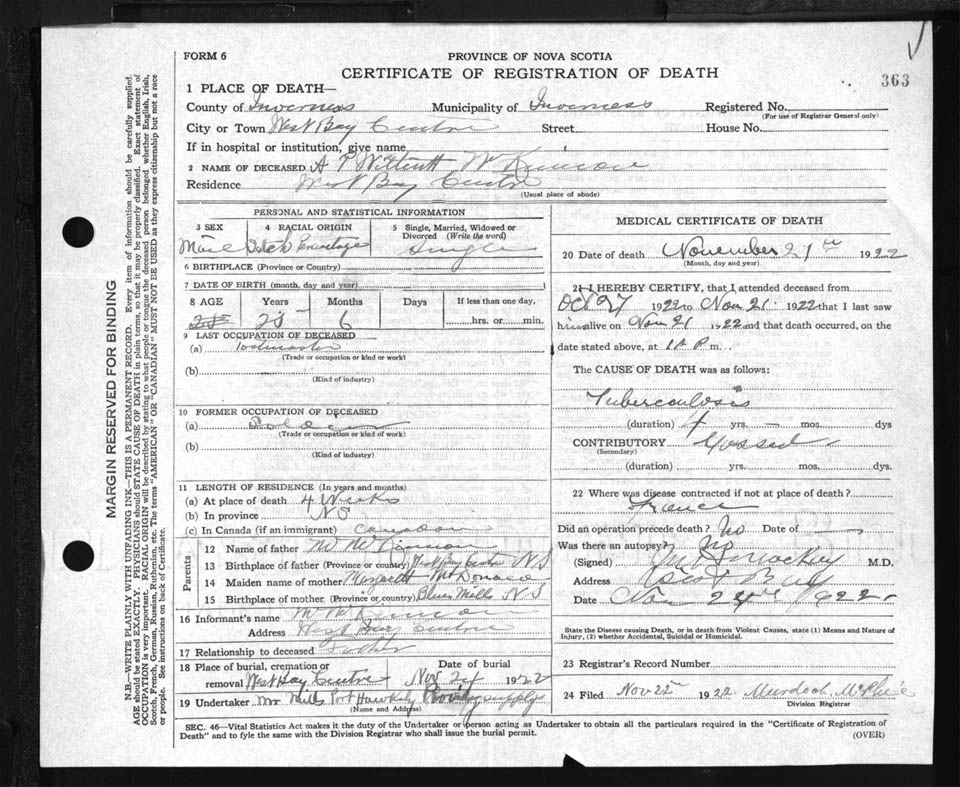 FORM 6
PROVINCE OF NOVA SCOTIA
CERTIFICATE OF REGISTRATION OF DEATH
363
1 PLACE OF DEATH—
County of Inverness Municipality of Inverness Registered No.
(For use of Registrar General only)
City or Town West Bay Centre Street House No.
If in hospital or institution, give name
2 NAME OF DECEASED A P McKinnon
Residence West Bay Centre
(Usual place of abode)
PERSONAL AND STATISTICAL INFORMATION
3 SEX 4 RACIAL ORIGIN 5 Single, Married, Widowed or Divorced (Write the word)
Male Single
6 BIRTHPLACE (Province or Country)
7 DATE OF BIRTH (month, day and year)
8 AGE Years Months Days If less than one day,
28 25 6 hrs. or min.
9 LAST OCCUPATION OF DECEASED
(a) Postmaster
(Trade or occupation or kind of work)
(b)
(Kind of industry)
10 FORMER OCCUPATION OF DECEASED
(a) Soldier
(Trade or occupation or kind of work)
(b)
(Kind of industry)
11 LENGTH OF RESIDENCE (In years and months)
(a) At place of death 4 Weeks
(b) In province NS
(c) In Canada (if an immigrant) Canadian
Parents
12 Name of father M McKinnon
13 Birthplace of father (Province or country) West Bay Centre N S
14 Maiden name of mother Margaret McDonald
15 Birthplace of mother (Province or country) Blues Mills N S
16 Informant's name M McKinnon
Address West Bay Centre
17 Relationship to deceased Father
18 Place of burial, cremation or removal West Bay Centre Date of burial Nov 24 1922
19 Undertaker Mr Mills Port Hawkesbury supply
(Name and Address)
MEDICAL CERTIFICATE OF DEATH
20 Date of death November 21st 1922
(Month, day and year)
21 I HEREBY CERTIFY, that I attended deceased from
Oct 27 1922 to Nov 21 1922 that I last saw
him alive on Nov 21 1922 and that death occurred, on the
date stated above, at P m.
The CAUSE OF DEATH was as follows:
Tuberculosis
(duration) 4 yrs. — mos. dys
CONTRIBUTORY Gassed
(Secondary)
(duration) yrs. mos. dys.
22 Where was disease contracted if not at place of death?
France
Did an operation precede death? No Date of —
Was there an autopsy? No
(Signed) M.D.
Address West Bay
Date Nov 24th 1922
State the Disease causing Death, or in death from Violent Causes, state (1) Means and Nature of Injury, (2) whether Accidental, Suicidal or Homicidal.
23 Registrar's Record Number
24 Filed Nov 22 1922 Murdoch McPhie
Division Registrar
SEC. 46—Vital Statistics Act makes it the duty of the Undertaker or person acting as Undertaker to obtain all the particulars required in the "Certificate of Registration of
Death" and to fyle the same with the Division Registrar who shall issue the burial permit.
(OVER)
MARGIN RESERVED FOR BINDING
N.B.—WRITE PLAINLY WITH UNFADING INK—THIS IS A PERMANENT RECORD. Every item of information should be carefully supplied.
AGE should be stated EXACTLY. PHYSICIANS should STATE CAUSE OF DEATH in plain terms, so that it may be properly classified. Exact statement of
OCCUPATION is very important. RACIAL ORIGIN will be described by stating to what people or tongue the deceased person belonged whether English, Irish,
Scotch, French, German, Russian, Ruthenian, etc. The terms "AMERICAN" OR "CANADIAN" MUST NOT BE USED as they express citizenship but not a race
or people. See instructions on back of Certificate.